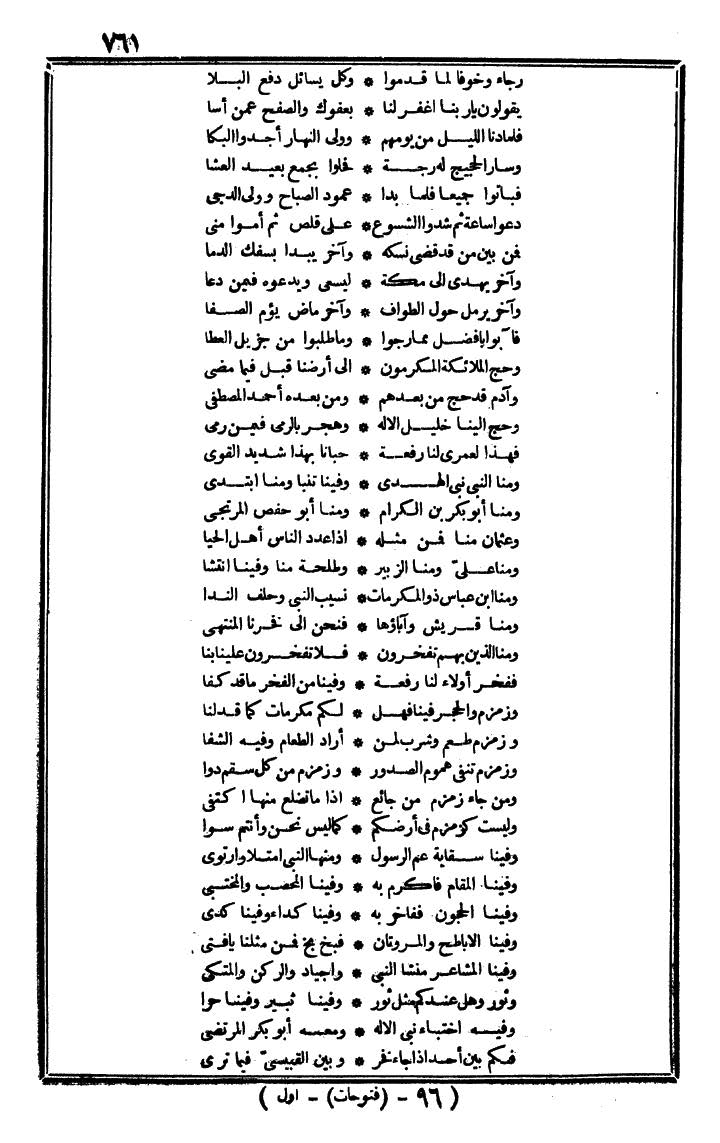 ٧٦١
رجاء وخوفا لما قدموا * وكل يسائل دفع البلا
يقولون ياربنا اغفر لنا * بعفوك والصفح عمن أسا
فلمادنا الليل من يومهم * وولى النهار أجدوا البكا
وسار الحجيج له رجة * فحلوا بجمع بعيد العشا
فباتوا جميعا فلما بدا * عمود الصباح وولى الدجى
دعوا ساعة ثم شدوا الشسوع * على قلص ثم أموا منى
فمن بين من قدقضى نسكه * وآخر يبدا بسفك الدما
وآخر يهدى الى مكة * ليسعى ويدعوه فيمن دعا
وآخر يرمل حول الطواف * وآخر ماض يؤم الصفا
فآبوا بافضل ممارجوا * وماطلبوا من جزيل العطا
وحج الملائكة المكرمون * الى أرضنا قبل فيما مضى
وآدم قدحج من بعدهم * ومن بعده أحمد المصطفى
وحج الينا خليل الاله * وهجر بالرمى فيمن رمى
فهذا لعمرى لنا رفعة * حبانا بهذا شديد القوى
ومنا النبى نبى الهدى * وفينا تنبا ومنا ابتدى
ومنا أبو بكر بن الكرام * ومنا أبو حفص المرتجى
وعثمان منا فمن مثله * اذا عدد الناس أهل الحيا
ومنا علىّ ومنا الزبير * وطلحة منا وفينا انتشا
ومنا ابن عباس ذو المكرمات * نسيب النبى وحلف الندا
ومنا قريش وآباؤها * فنحن الى فخرنا المنتهى
ومنا الذين بهم تفخرون * فلا تفخرون علينا بنا
ففخر أولاء لنا رفعة * وفينا من الفخر ماقد كفا
وزمزم والحجر فينا فهل * لكم مكرمات كما قد لنا
وزمزم طعم وشرب لمن * أراد الطعام وفيه الشفا
وزمزم تنفى هموم الصدور * وزمزم من كل سقم دوا
ومن جاء زمزم من جائع * اذا ماتضلع منها اكتفى
وليست كزمزم فى أرضكم * كماليس نحن وأنتم سوا
وفينا سقاية عم الرسول * ومنها النبى امتلا وارتوى
وفينا المقام فاكرم به * وفينا المحصب والمختبى
وفينا الحجون ففاخر به * وفينا كداء وفينا كدى
وفينا الاباطح والمروتان * فبخ بخ فمن مثلنا يافتى
وفينا المشاعر منشا النبى * واجياد والركن والمتكى
وثور وهل عندكم مثل ثور * وفينا ثبير وفينا حرا
وفيه اختباء نبى الاله * ومعه أبو بكر المرتضى
فكم بين أحد اذا جاء فخر * وبين القبيسىّ فيما ترى
( ٩٦ - (فتوحات) - اول )